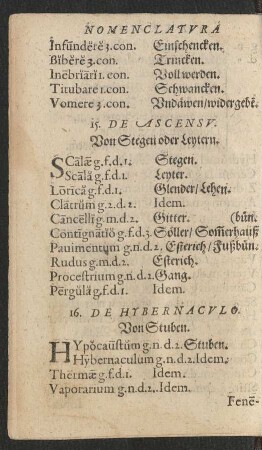 NOMENCLATVRA
Infūndĕrĕ 3.con. Einschencken.
Bĭbĕrĕ 3.con. Trincken.
Inēbrĭārī 1.con. Voll werden.
Titubare 1.con. Schwancken.
Vomere 3.con. Vndäwen/widergebē.
15. DE ASCENSV.
Von Stegen oder Leytern.
SCālæ g.f.d.1. Stegen.
Scālă g.f.d.1. Leyter.
Lōrīcă g.f.d.1. Glender/Lehen.
Clātrūm g.2.d.2. Idem.
Cāncēllī g.m.d.2. Gitter. (bün.
Contignatiō g.f.d.3. Söller/Som̄erhauß
Pauimentum g.n.d.2. Esterich/Fußbün.
Rudus g.m.d.2. Esterich.
Procestrium g.n.d.2. Gang.
Pērgŭlă g.f.d.1. Idem.
16. DE HYBERNACVLO.
Von Stuben.
HYpŏcaūstūm g.n.d.2. Stuben.
Hȳbernaculum g.n.d.2. Idem.
Thermæ g.f.d.1. Idem.
Vaporarium g.n.d.2. Idem.
Fenē-